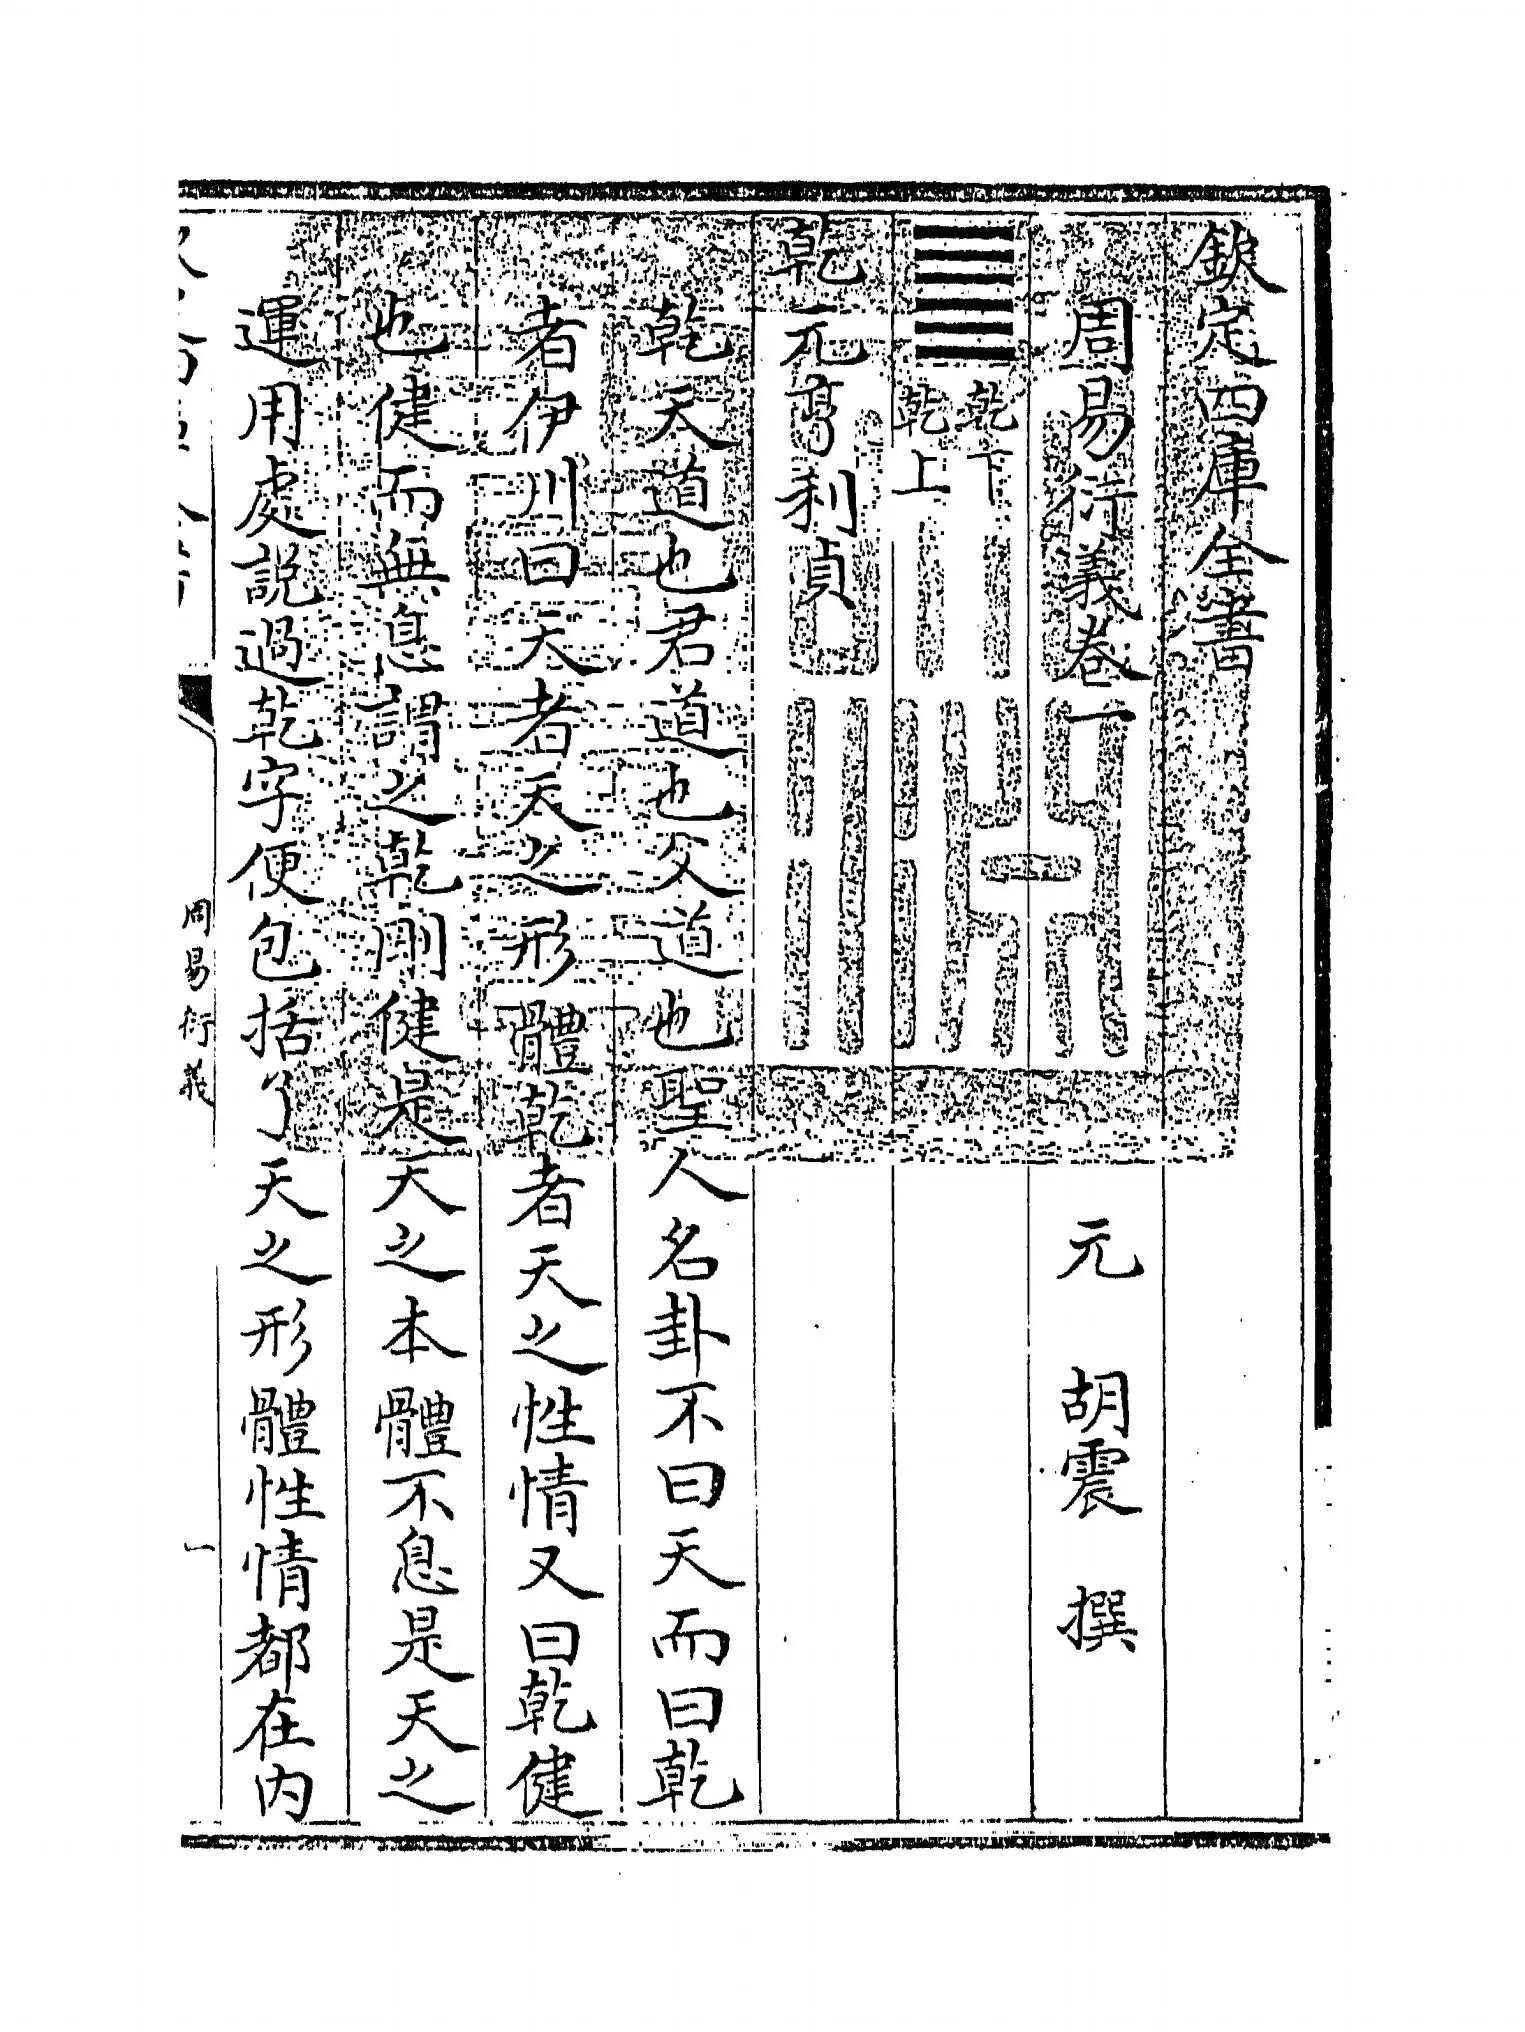 欽定四庫全書
周易衍義卷一
元 胡震 撰
乾下
乾上
乾元亨利貞
乾天道也君道也父道也聖人名卦不曰天而曰乾
者伊川曰天者天之形體乾者天之性情又曰乾健
也健而無息謂之乾剛健是天之本體不息是天之
運用處説過乾字便包括了天之形體性情都在内
周易衍義
一